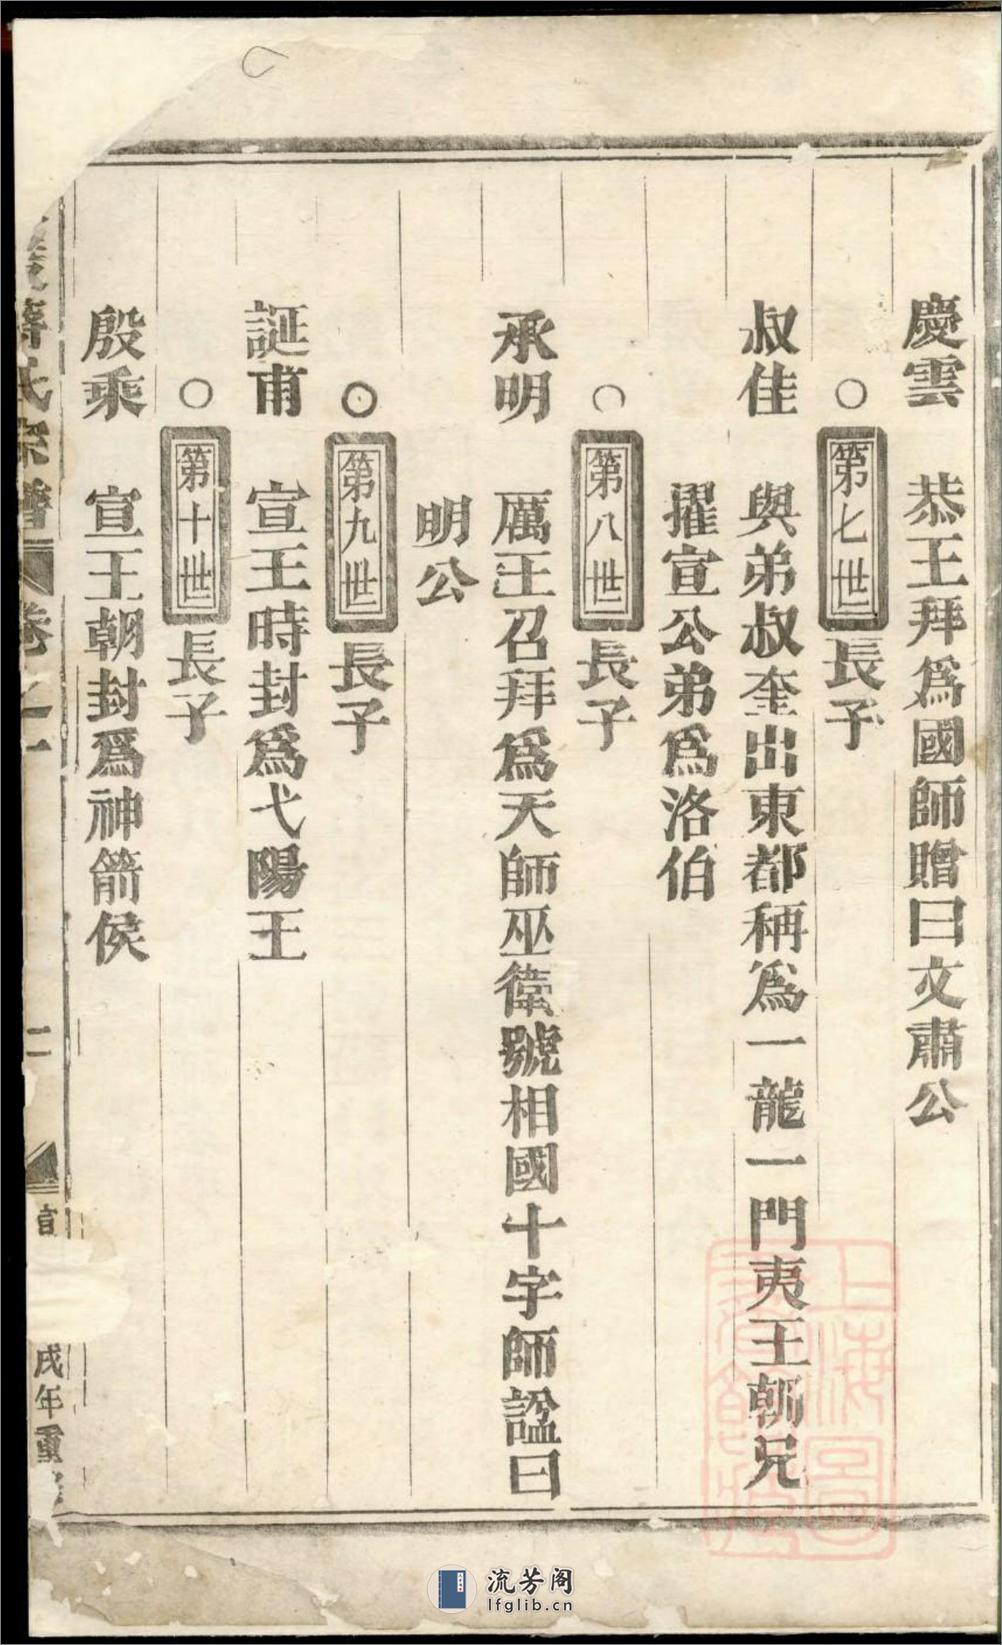 慶雲 恭王拜爲國師贈曰文肅公
○第七世長子
叔佳 與弟叔奎出東都稱爲一龍一門夷王朝兄
擢宣公弟爲洛伯
○第八世長子
承明 厲王召拜爲天師巫衛號相國十字師諡曰
明公
○第九世長子
誕甫 宣王時封爲弋陽王
○第十世長子
殷乘 宣王朝封爲神箭侯
蔣氏宗譜 卷之一 二
戌年重
上海圖
流芳阁
lfglib.cn